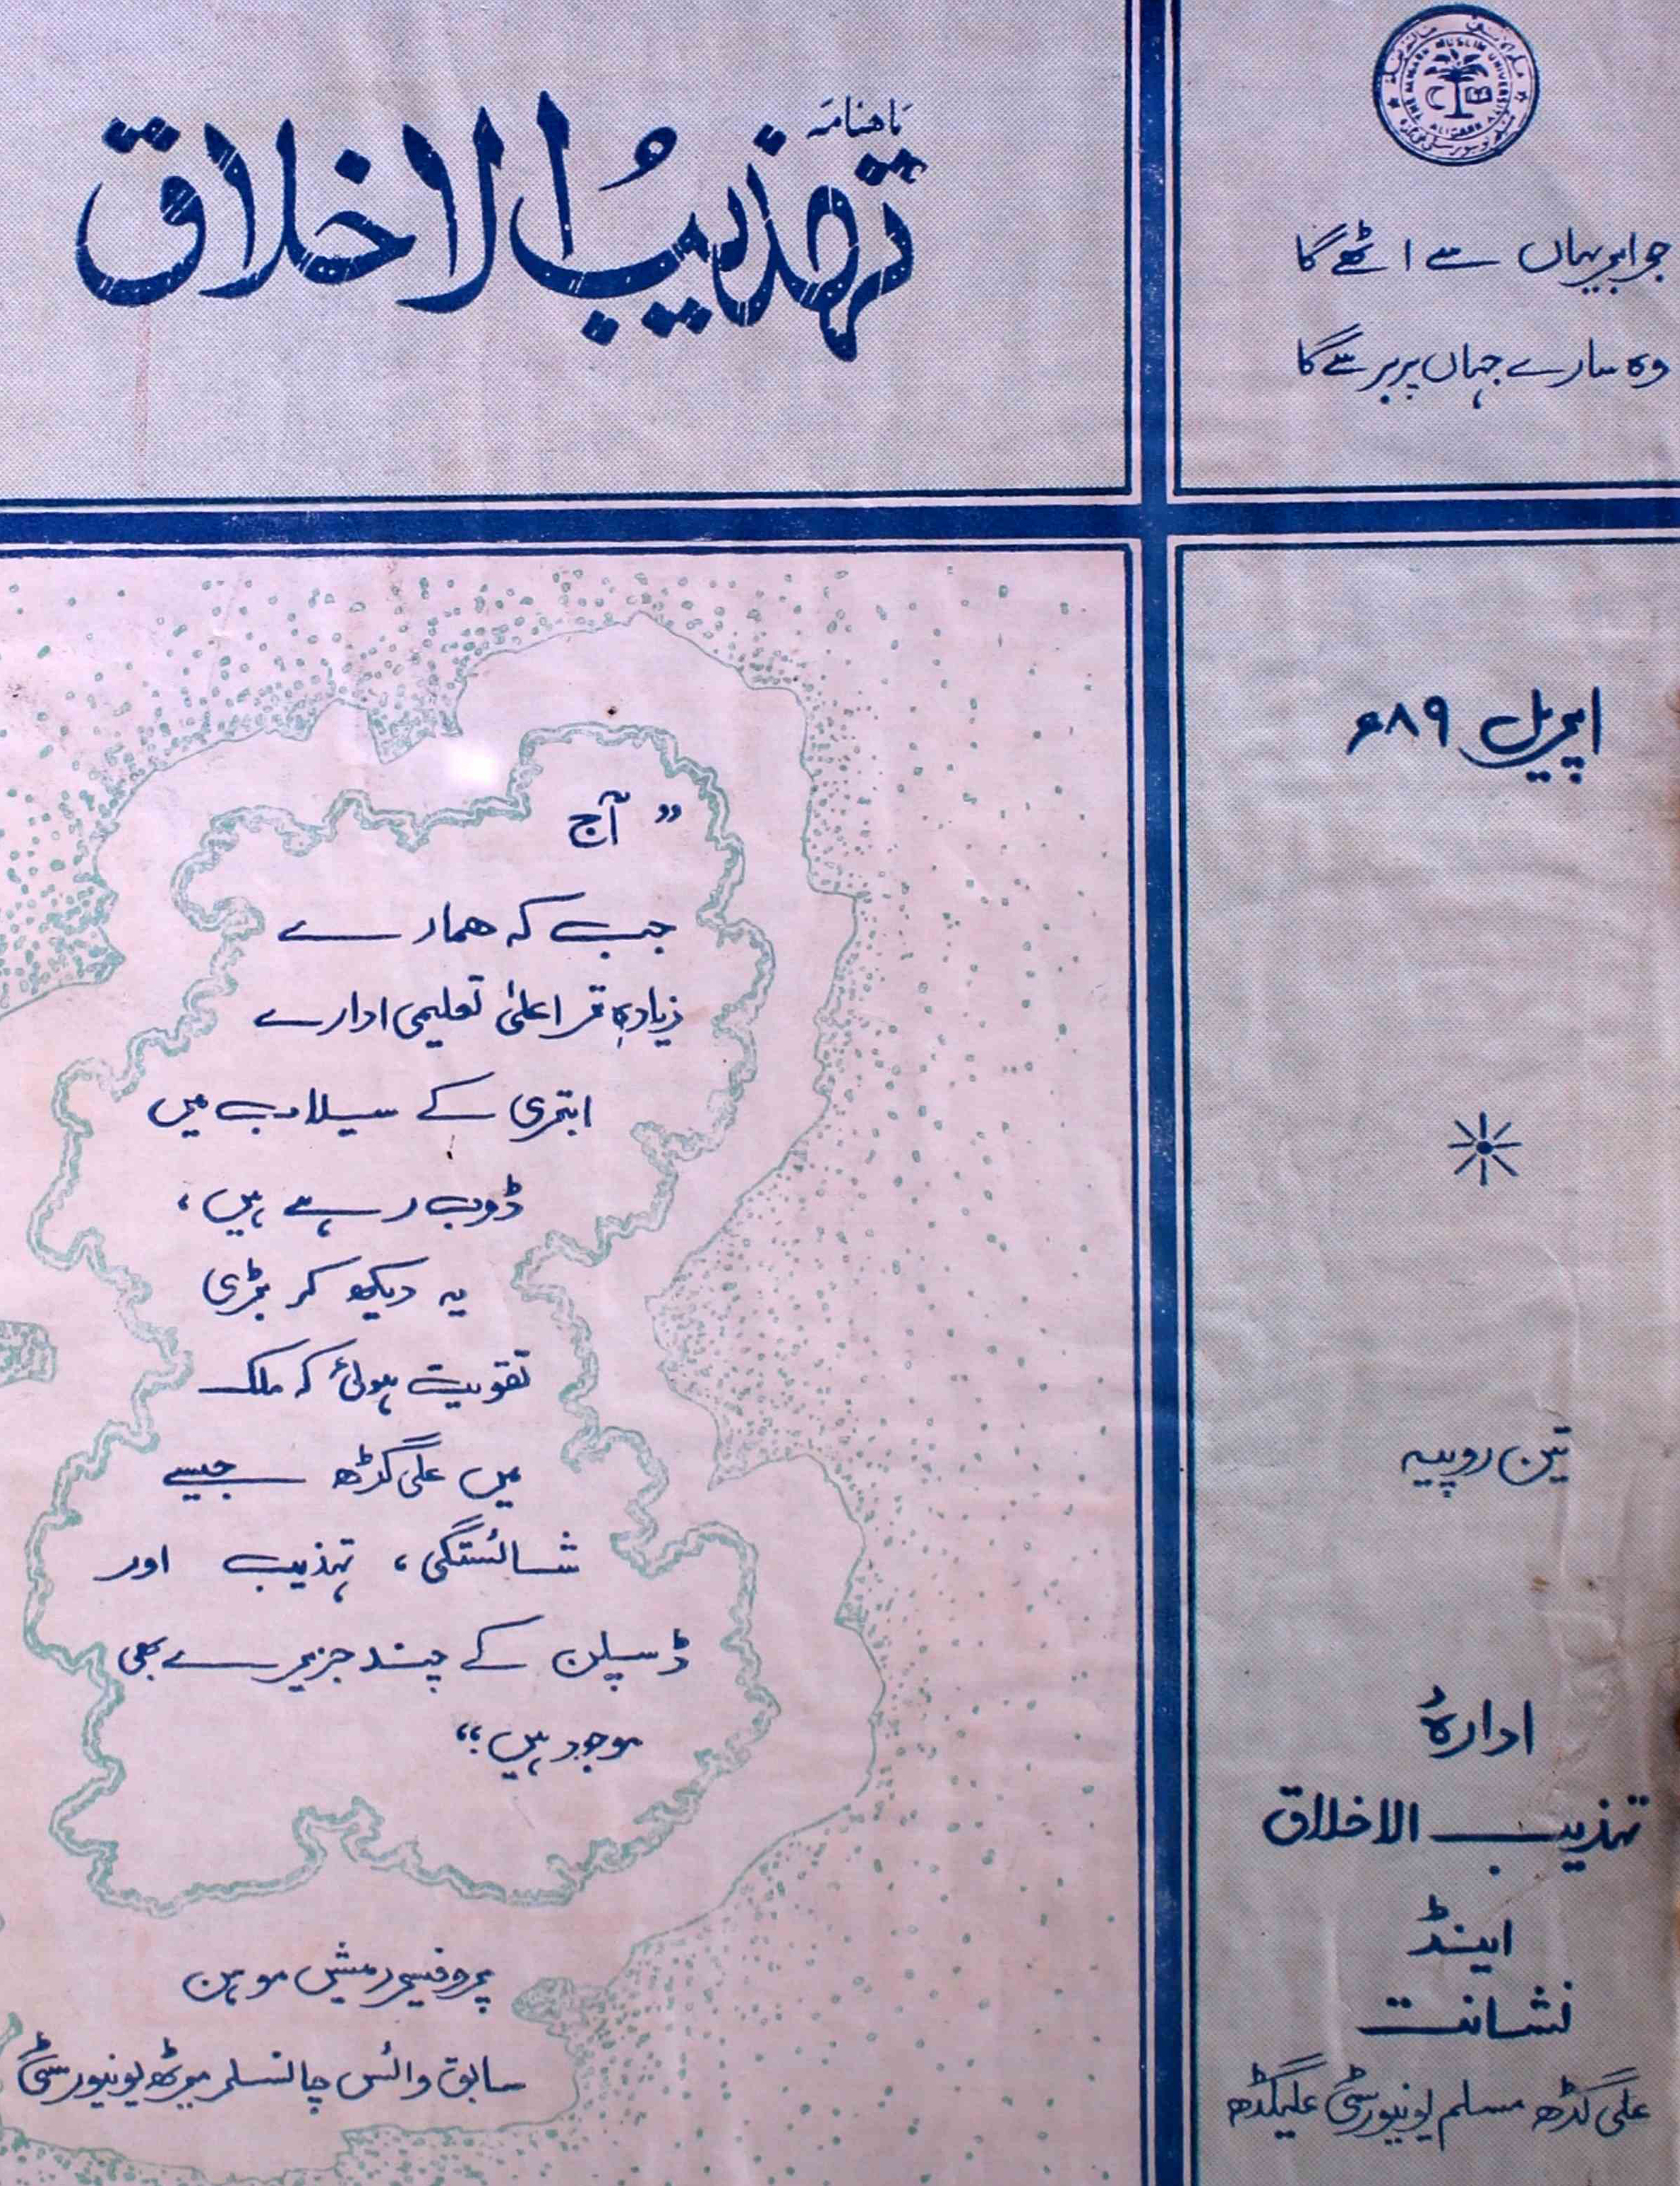 ماهنامہ
تہذیبُ الاخلاق
THE ALIGARH MUSLIM UNIVERSITY ALIGARH
جو ابر یہاں سے اٹھے گا
وہ سارے جہاں پر برسے گا
اپریل ۸۹ء
تین روپیہ
ادارۂ
تہذیب الاخلاق
اینڈ
نشانت
علی گڑھ مسلم یونیورسٹی علیگڈھ
” آج
جب کہ ہمارے
زیادہ تر اعلیٰ تعلیمی ادارے
ابتری کے سیلاب میں
ڈوب رہے ہیں،
یہ دیکھ کر بڑی
تقویت ہوئی کہ ملک
میں علی گڑھ جیسے
شائستگی، تہذیب اور
ڈسپلن کے چند جزیرے بھی
موجود ہیں“
پروفیسر رمیش موہن
سابق وائس چانسلر میرٹھ یونیورسٹی